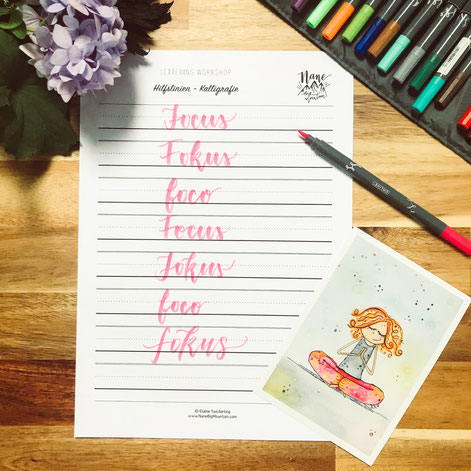 LETTERING WORKSHOP
Hilfslinien - Kalligrafie
Nane
Focus
Fokus
foco
Focus
Fokus
foco
fokus
www.NaneBigMountain.com